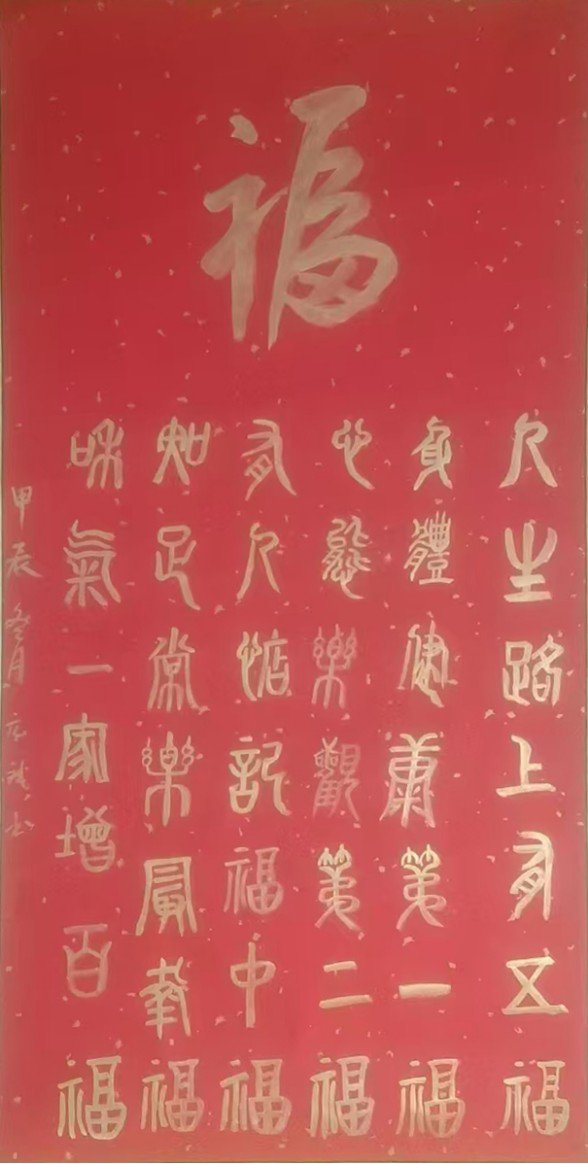 福
人生路上有五福
身體健康第一福
心態樂觀第二福
有人惦記福中福
知足常樂最幸福
咊氣一家增百福
甲辰冬月元書